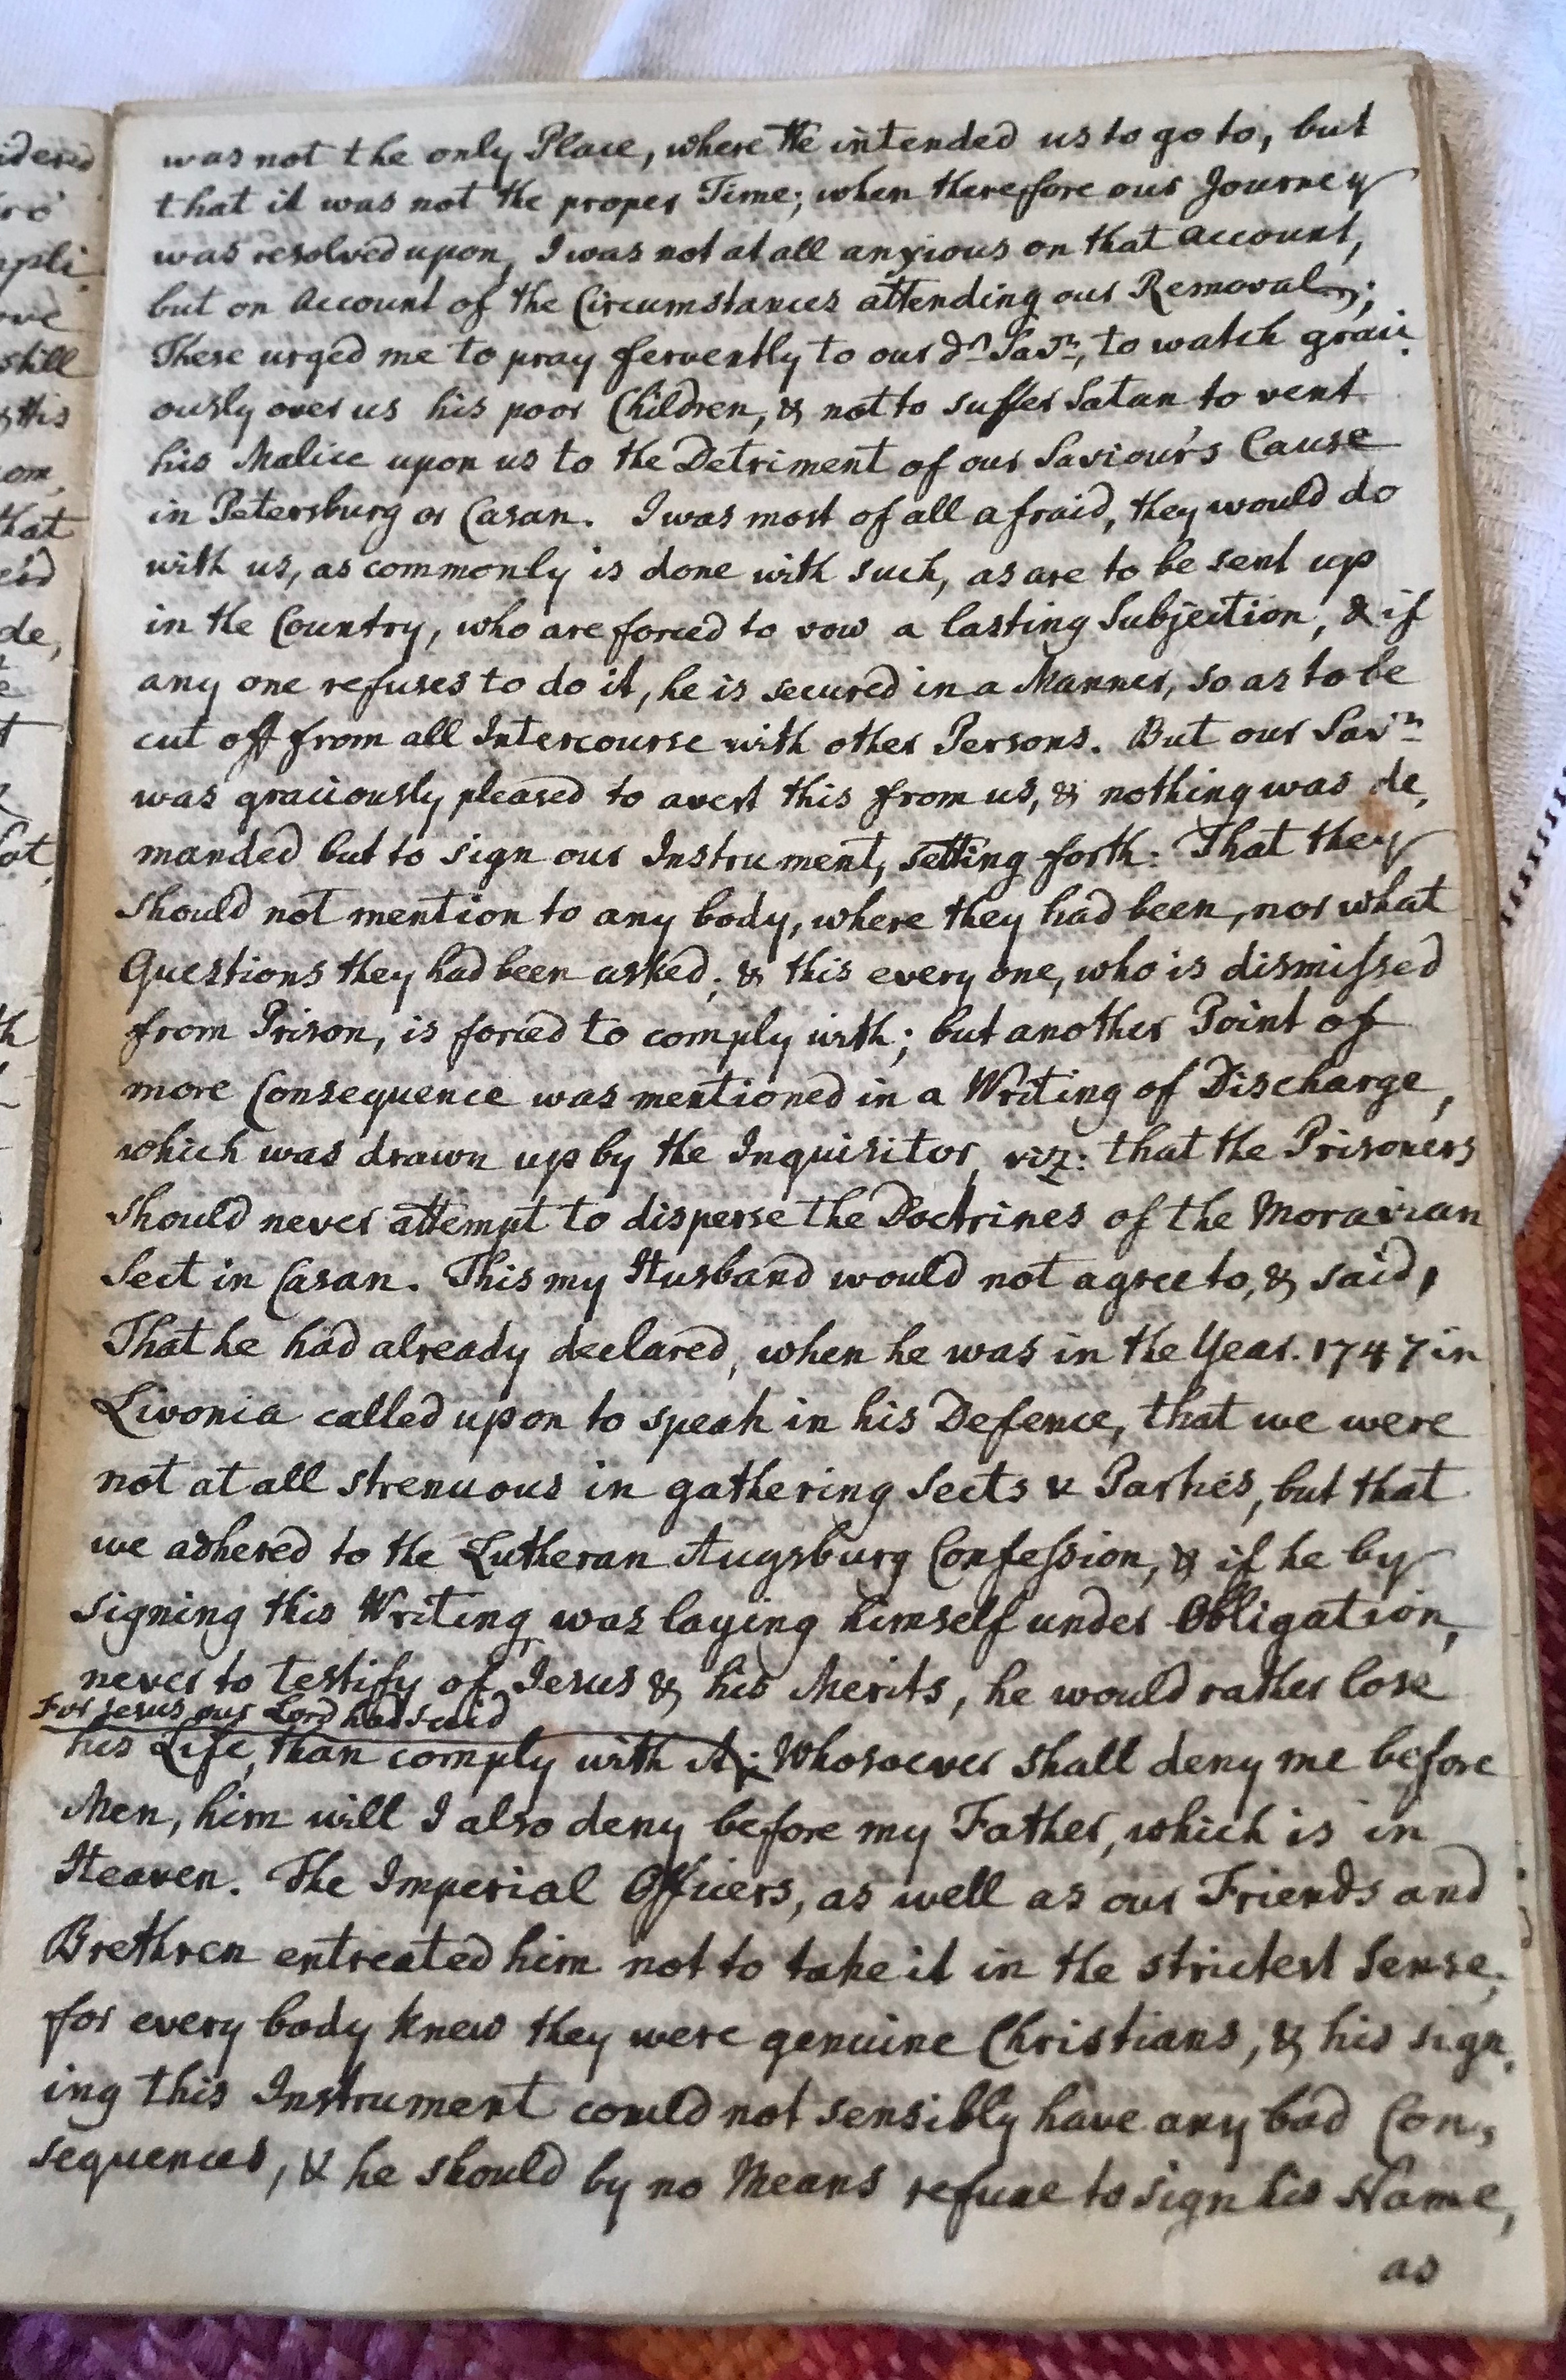 was not the only Place, where He intended us to go to, but
that it was not the proper Time; when therefore our Journey
was resolved upon, I was not at all anxious on that account,
but on account of the Circumstances attending our Removal;
These urged me to pray fervently to our dr Savr, to watch graci,
ously over us his poor Children, & not to suffer Satan to vent
his Malice upon us to the Detriment of our Saviour's Cause
in Petersburg or Casan. I was most of all afraid, they would do
with us, as commonly is done with such, as are to be sent up
in the Country, who are forced to vow a lasting Subjection, & if
any one refuses to do it, he is secured in a Manner, so as to be
cut off from all Intercourse with other Persons. But our Savr
was graciously pleased to avert this from us, & nothing was de,
manded but to sign our Instrument, setting forth: That they
should not mention to any body, where they had been, nor what
Questions they had been asked; & this every one, who is dismissed
from Prison, is forced to comply with; but another Point of
more Consequence was mentioned in a Writing of Discharge,
which was drawn up by the Inquisitor, viz: that the Prisoners
should never attempt to disperse the Doctrines of the Moravian
Sect in Casan. This my Husband would not agree to, & said,
That he had already declared, when he was in the Year. 1747 in
Livonia called upon to speak in his Defence, that we were
not at all strenuous in gathering Sects & Parties, but that
we adhered to the Lutheran Augsburg Confession, & if he by
signing this Writing was laying himself under Obligation,
never to testify of Jesus & his Merits, he would rather lose
For Jesus our Lord had said
his Life, than comply with it; Whosoever shall deny me before
Men, him will I also deny before my Father, which is in
Heaven. The Imperial Officers, as well as our Friends and
Brethren entreated him not to take it in the strictest Sense,
for every body knew they were genuine Christians, & his sign,
ing this Instrument could not sensibly have any bad Con,
sequences, & he should by no Means refuse to sign his Name,
as